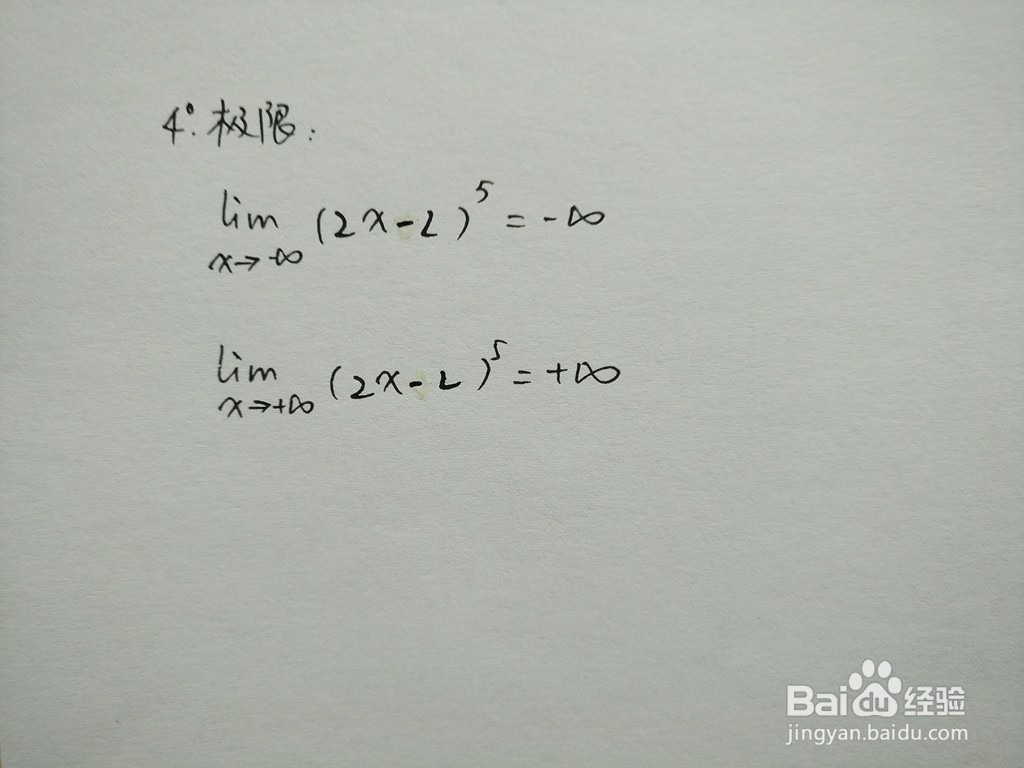 4°. 极限:
lim (2x-2)^5 = -∞
x→-∞
lim (2x-2)^5 = +∞
x→+∞
Bai du 经验
jingyan.baidu.com